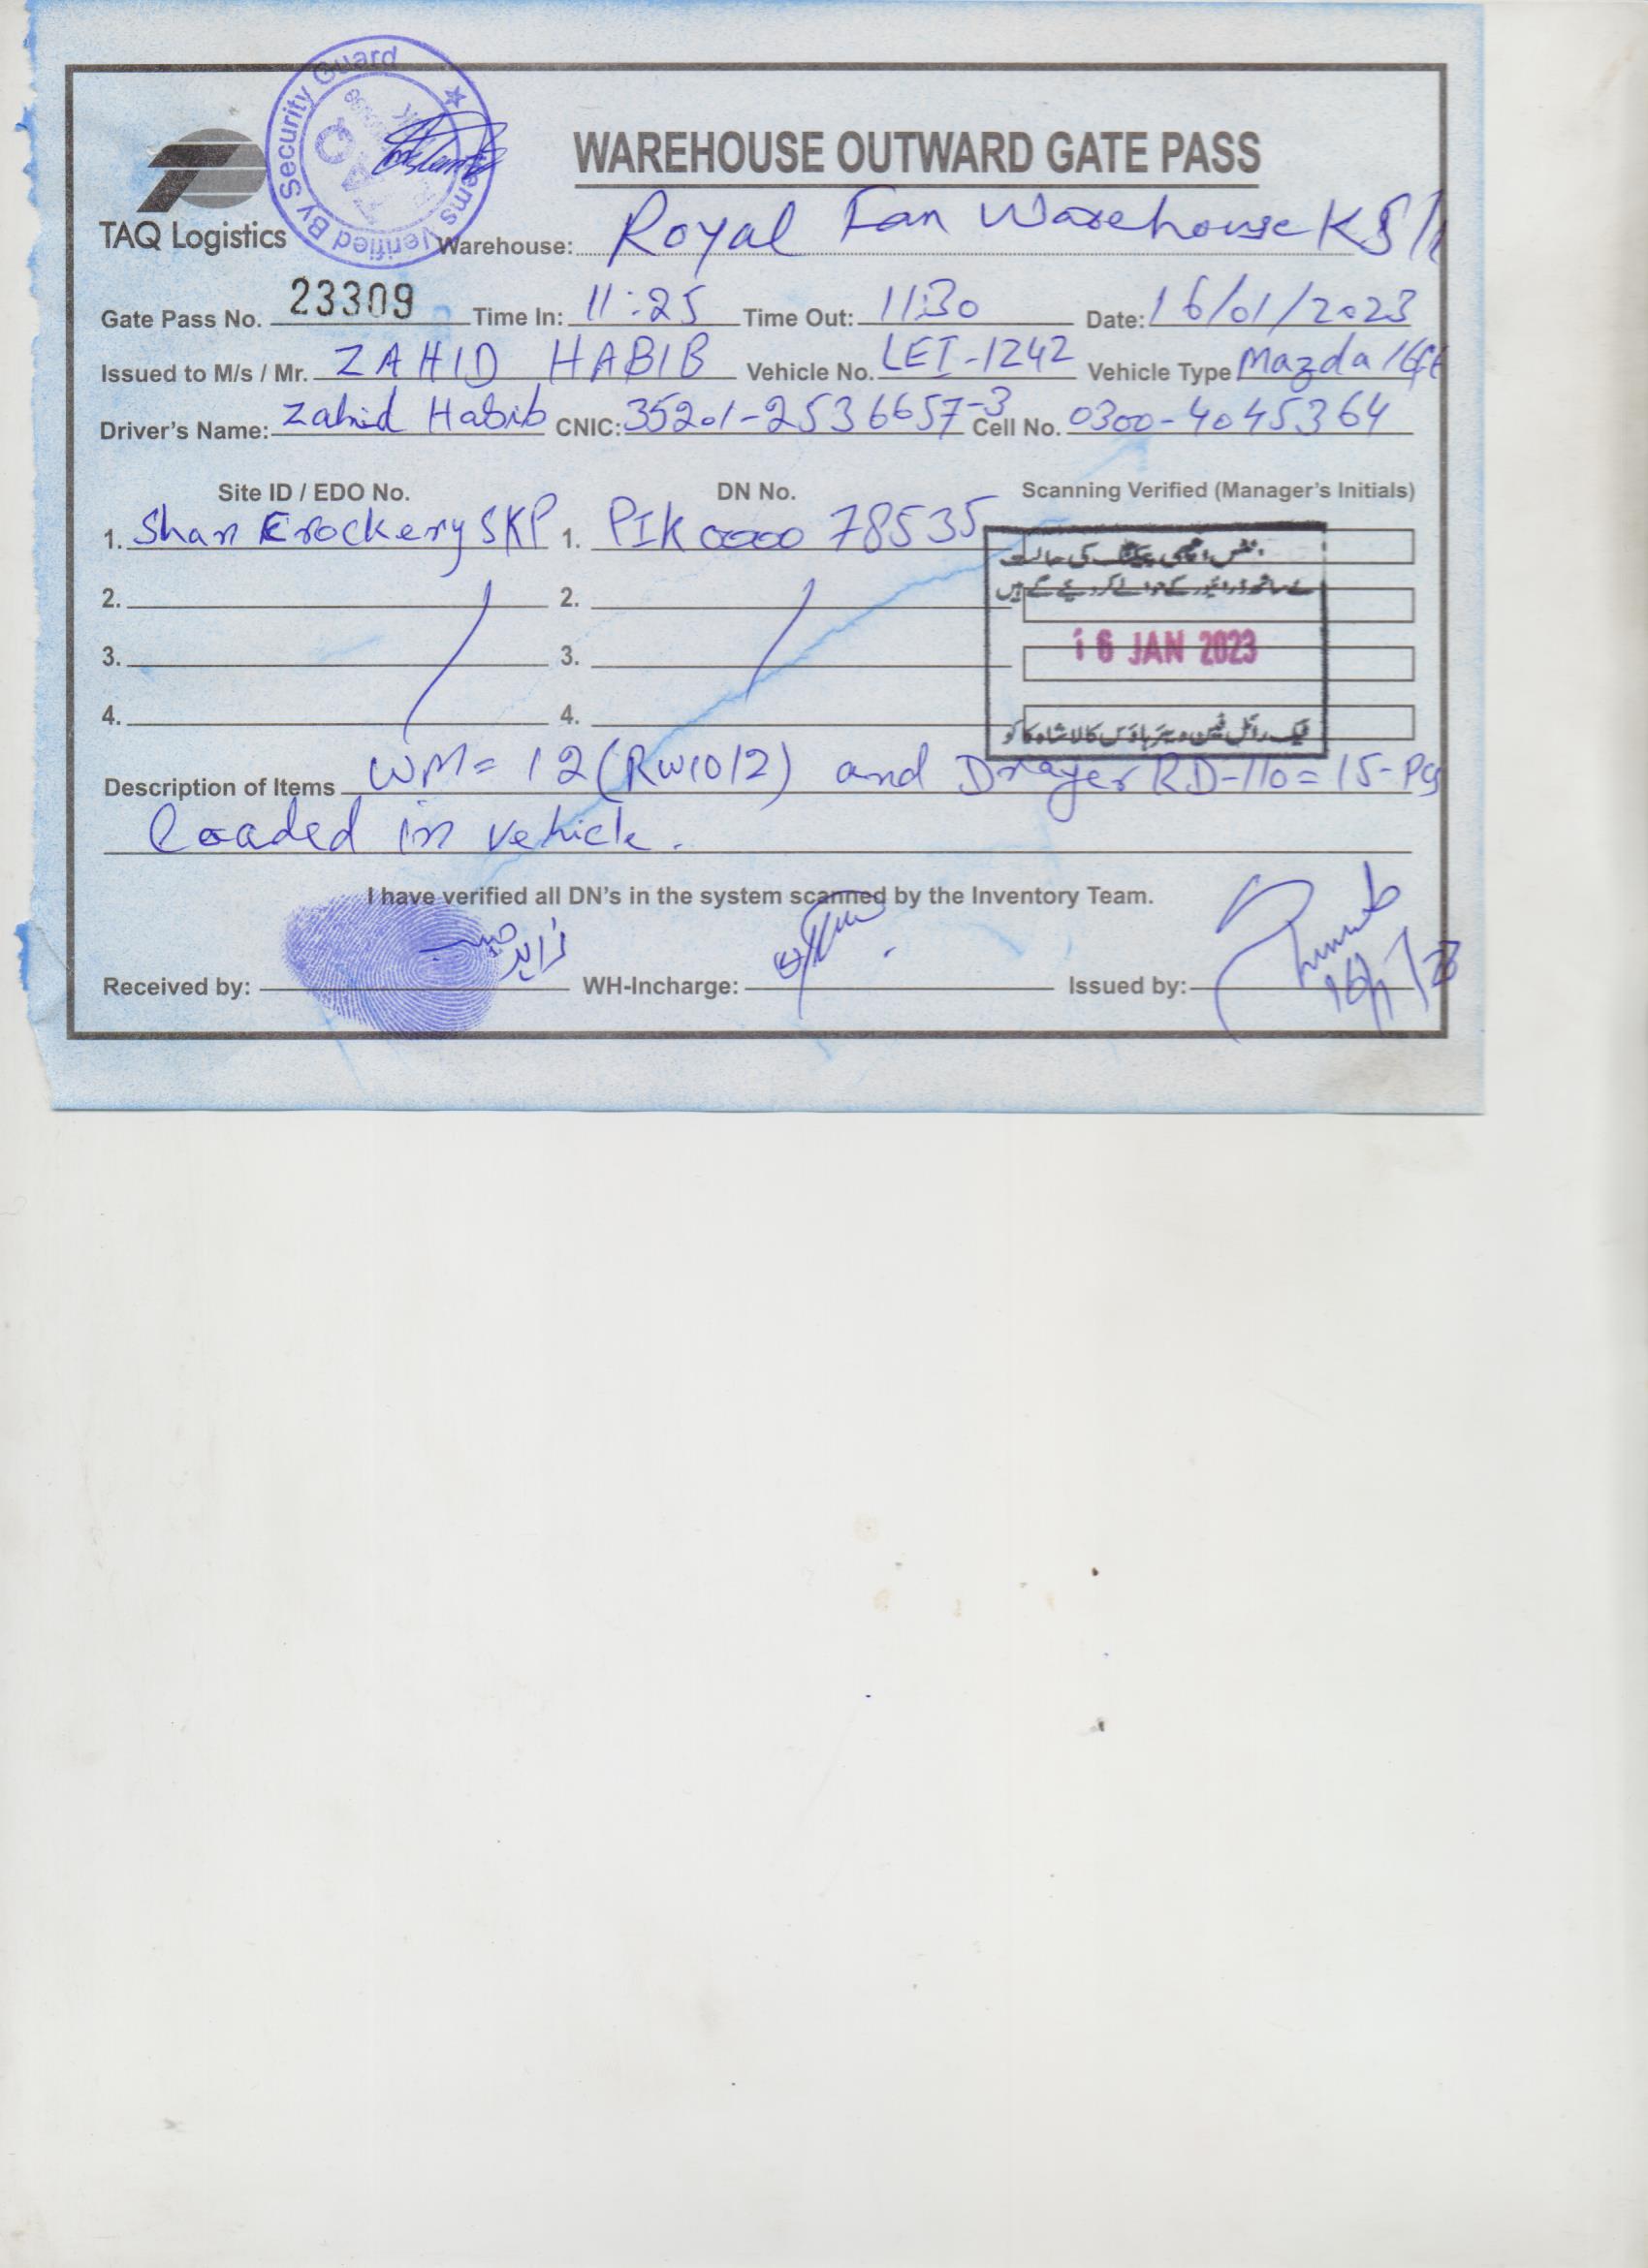 Items Verified By Security Guard
TAQ
TAQ Logistics
WAREHOUSE OUTWARD GATE PASS
Warehouse: Royal Fan Warehouse
Gate Pass No. 23309 Time In: 11:25 Time Out: 11:30 Date: 16/01/2023
Issued to M/s / Mr. ZAHID HABIB Vehicle No. LEI-1242 Vehicle Type Mazda 16ft
Driver's Name: Zahid Habib CNIC: 35201-2536657-3 Cell No. 0300-4045364
Site ID / EDO No. DN No. Scanning Verified (Manager's Initials)
1. Shan Crockery SKP 1. PIK0000 78535
2. 2.
3. 3.
16 JAN 2023
4. 4.
Description of Items WM= 12 (RW1012) and Drayer RD-110=15-Pcs
loaded in vehicle.
I have verified all DN's in the system scanned by the Inventory Team.
زاہد حبیب
Received by: WH-Incharge: Issued by: